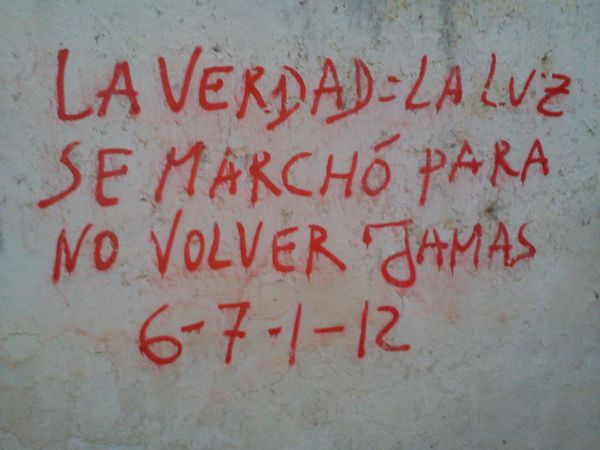 LA VERDAD=LA LUZ
SE MARCHÓ PARA
NO VOLVER JAMAS
6-7-1-12